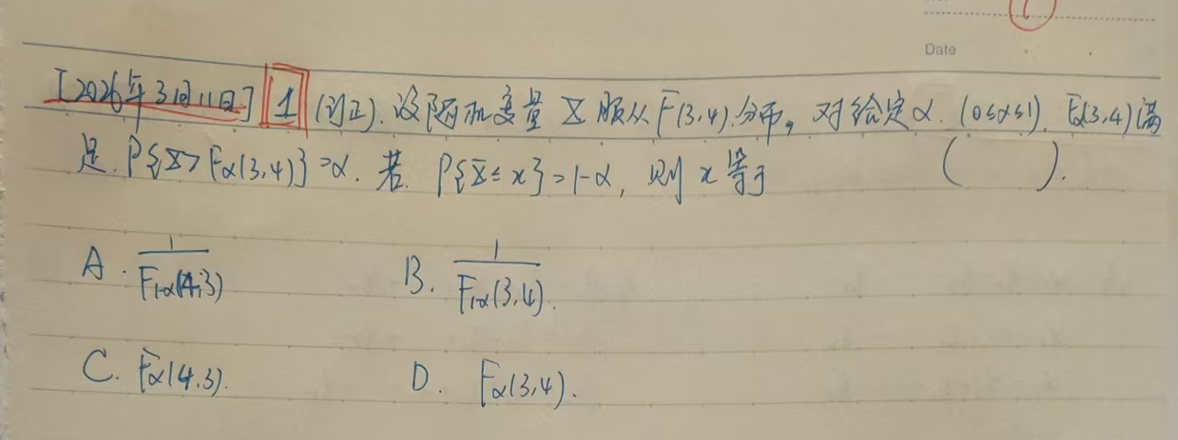 Date
[2026年3月11日] 1 (订正). 设随机变量 X 服从 F(3,4). 分布。对给定α. (0≤α≤1). Fα(3,4)满
足. P{X>Fα(3,4)}=α. 若. P{X≤x}=1-α, 则 x 等于 ( ).
A. 1/F1-α(4,3) B. 1/F1-α(3,4).
C. Fα(4,3). D. Fα(3,4).